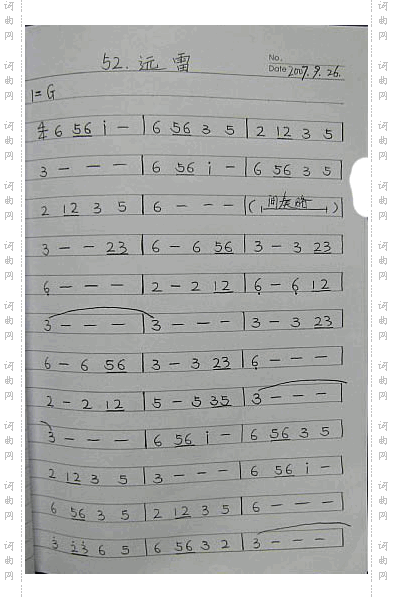 52. 远雷
No.
Date 2007.9.26.
1=G
4/4 6 56 i - | 6 56 3 5 | 2 12 3 5 |
3 - - - | 6 56 i - | 6 56 3 5 |
2 12 3 5 | 6 - - - | (间奏略) |
3 - - 23 | 6 - 6 56 | 3 - 3 23 |
6̣ - - - | 2 - 2 12 | 6̣ - 6̣ 12 |
3 - - - | 3 - - - | 3 - 3 23 |
6 - 6 56 | 3 - 3 23 | 6̣ - - - |
2 - 2 12 | 5 - 5 35 | 3 - - - |
3 - - - | 6 56 i - | 6 56 3 5 |
2 12 3 5 | 3 - - - | 6 56 i - |
6 56 3 5 | 2 12 3 5 | 6 - - - |
3̇ 2̇3̇ 6 5 | 6 56 3 2 | 3 - - - |
词曲网
词曲网
词曲网
词曲网
词曲网
词曲网
词曲网
词曲网
词曲网
词曲网